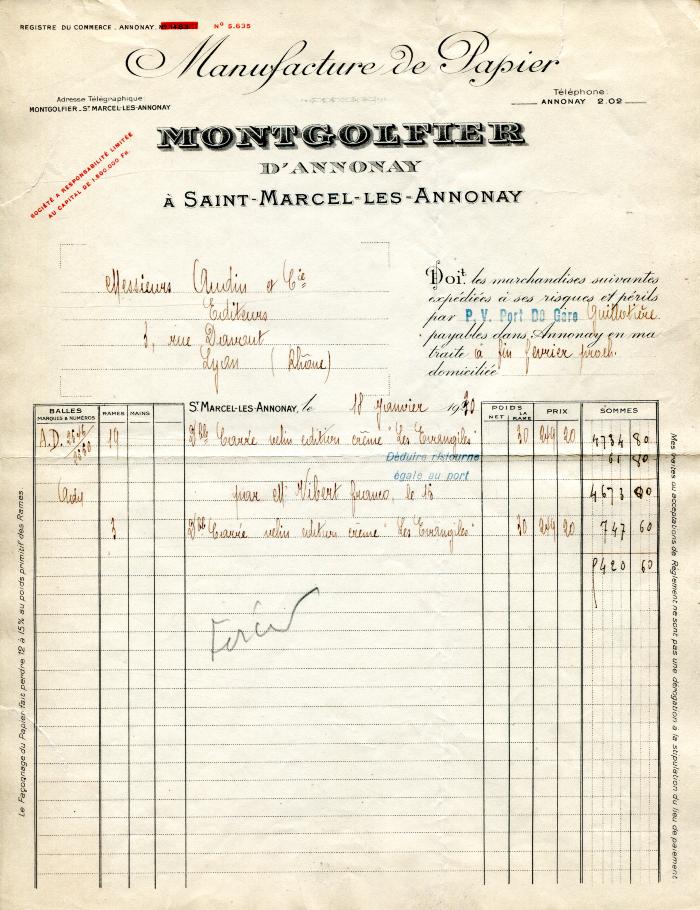 REGISTRE DU COMMERCE . ANNONAY. Nº 1463 Nº 5.635
Manufacture de Papier
Adresse Télégraphique:
MONTGOLFIER_ST MARCEL-LES-ANNONAY
Téléphone:
ANNONAY 2.02
SOCIÉTÉ A RESPONSABILITÉ LIMITÉE
AU CAPITAL DE 1.800.000 Frs.
MONTGOLFIER
D'ANNONAY
À SAINT-MARCEL-LES-ANNONAY
Messieurs Audin et Cie
Editeurs
3, rue Davout
Lyon (Rhône)
Doit les marchandises suivantes
expédiées à ses risques et périls
par P. V. Port Dû Gare Guillotière
payables dans Annonay en ma
traite à fin février proch.
domiciliée
ST MARCEL-LES-ANNONAY, le 18 Janvier 1930
BALLES MARQUES & NUMÉROS RAMES MAINS POIDS NET LA RAME PRIX SOMMES
A.D. 2626/2630 19 Carré velin edition crême "Les Evangiles" 30 249 20 4734 80
Déduire ristourne 61 80
égale au port
par Mr Vibert franco, le 16 4673 00
3 Carré velin edition crême "Les Evangiles" 30 249 20 747 60
5420 60
Le Façonnage du Papier fait perdre 12 à 15% au poids primitif des Rames
Mes traites ou acceptations de Règlement ne sont pas une dérogation à la stipulation du lieu de paiement